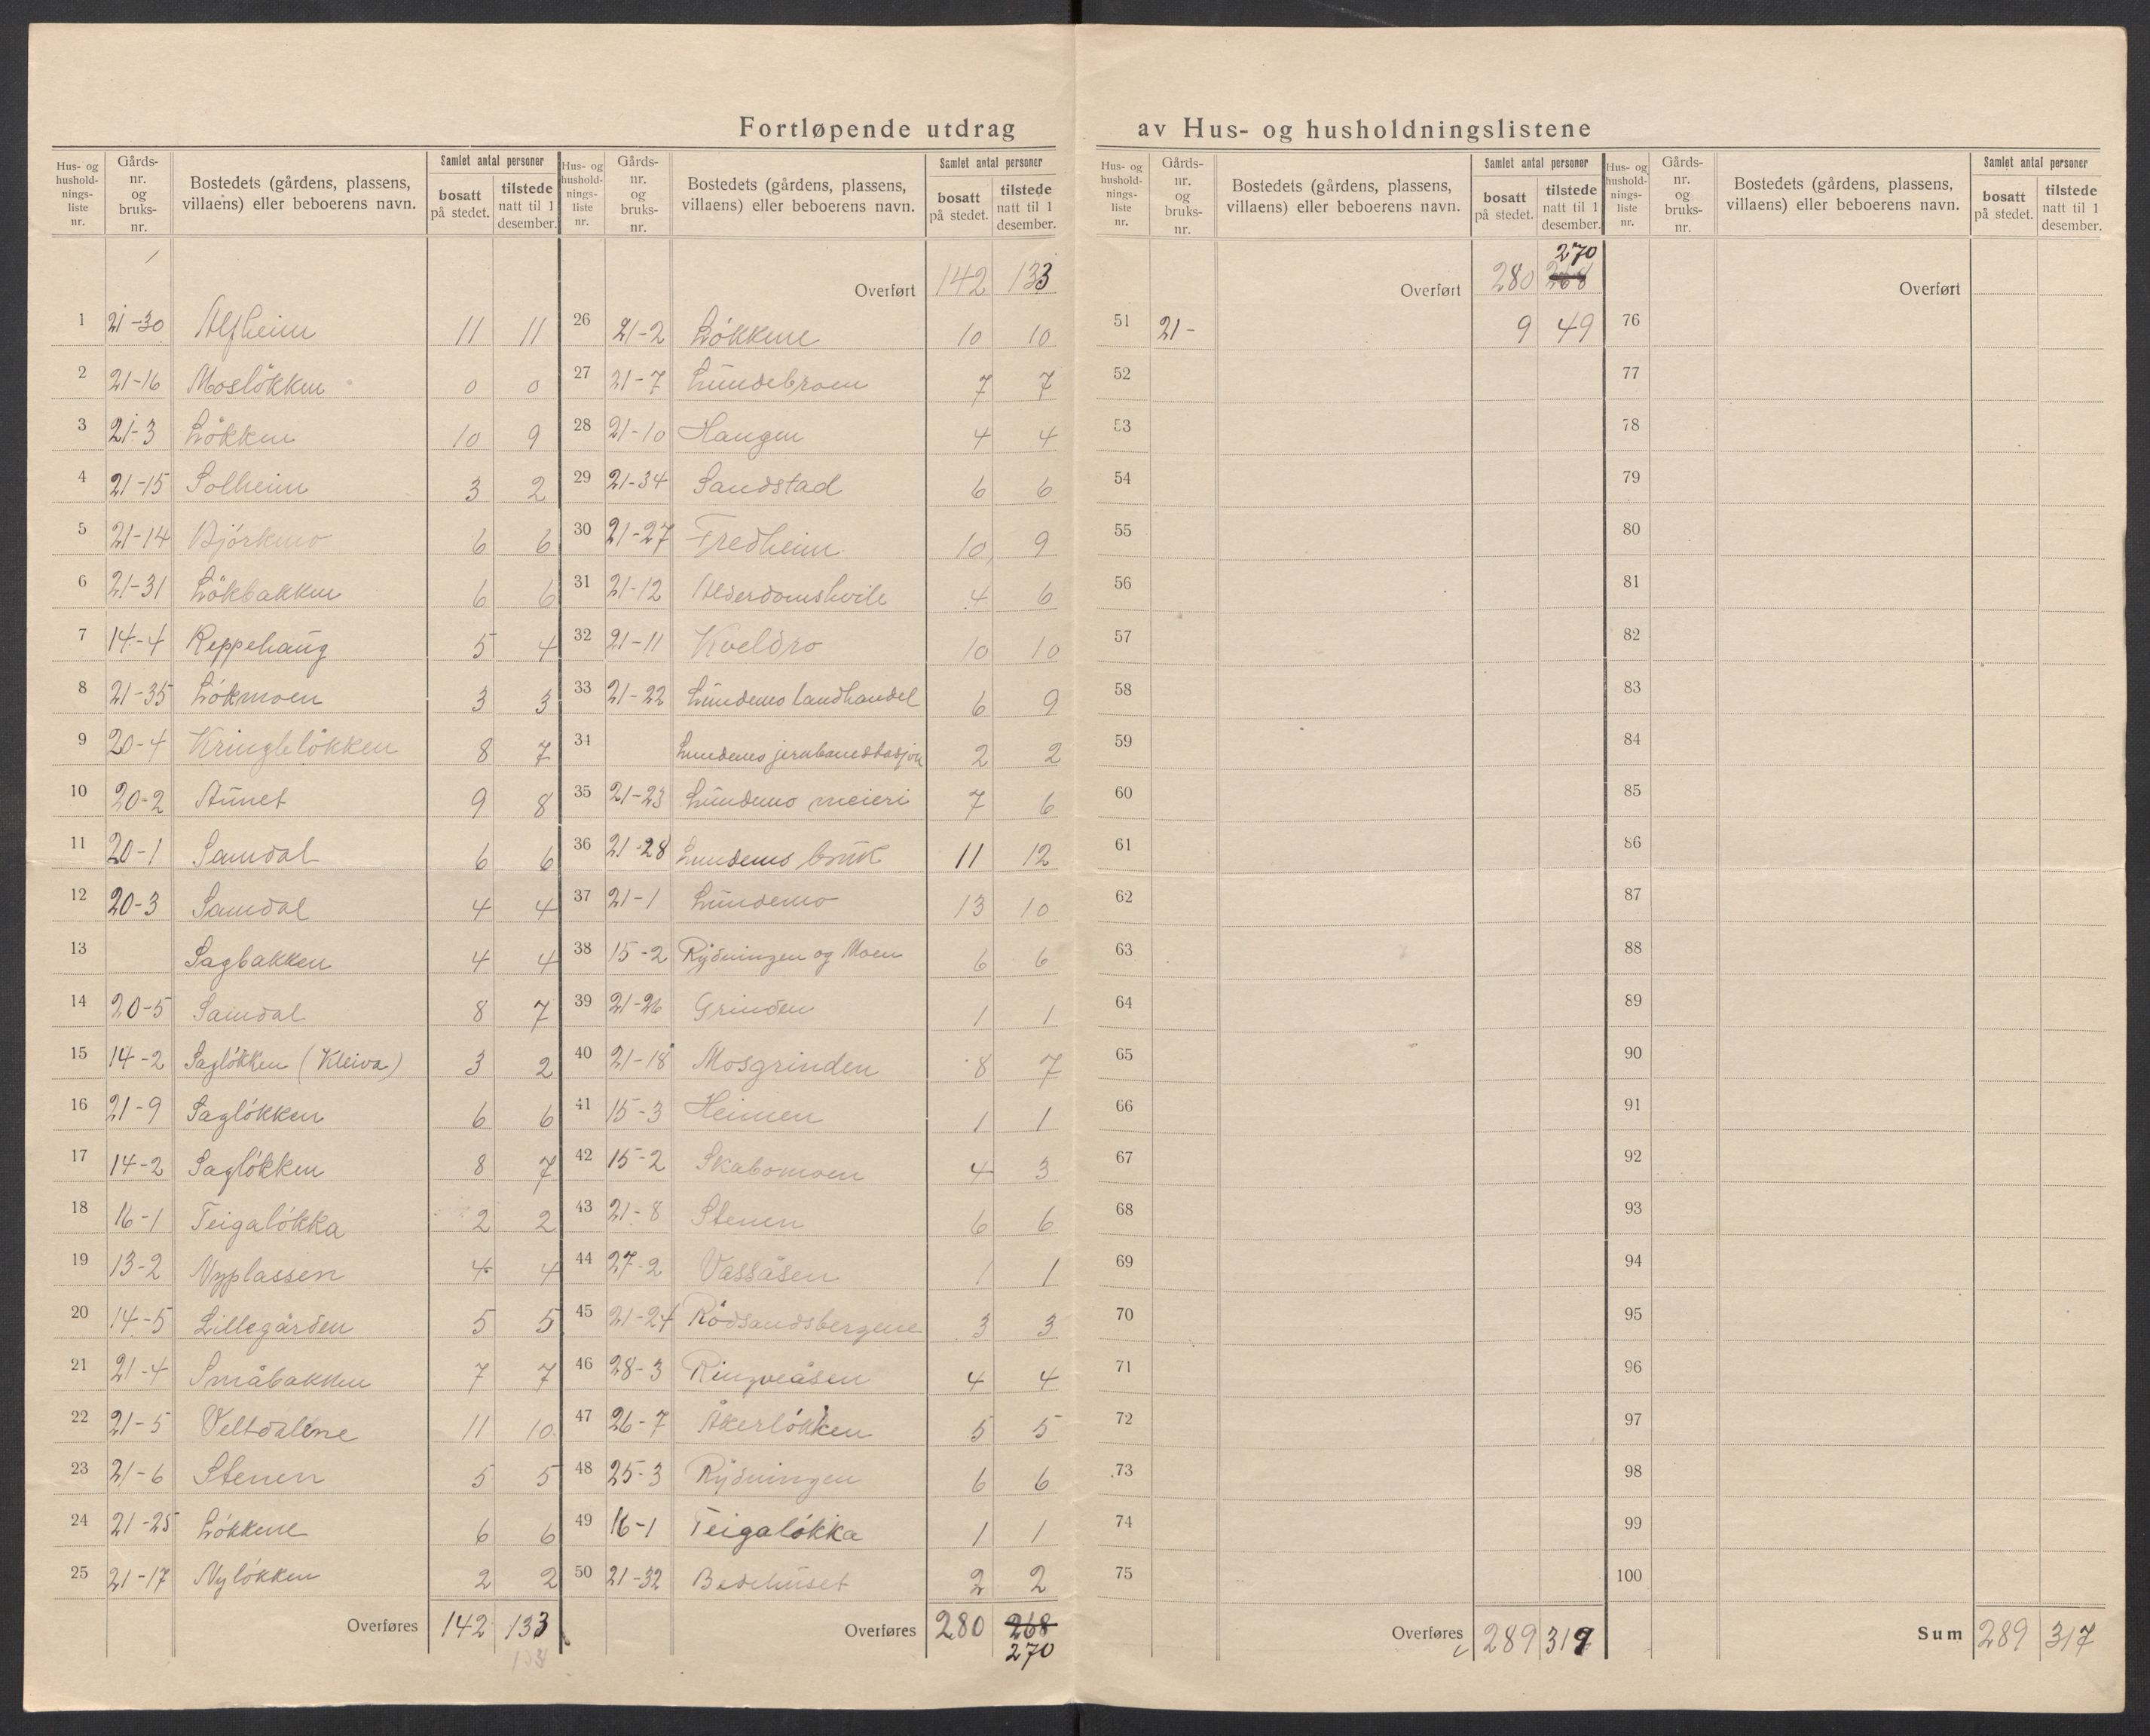 Fortløpende utdrag av Hus- og husholdningslistene
Hus- og hushold-nings-liste nr. Gårds-nr. og bruks-nr. Bostedets (gårdens, plassens, villaens) eller beboerens navn. Samlet antal personer bosatt på stedet. tilstede natt til 1 desember.
1 21-30 Alfheim 11 11
2 21-16 Mosløkken 0 0
3 21-3 Løkken 10 9
4 21-15 Solheim 3 2
5 21-14 Bjørkmo 6 6
6 21-31 Løkbakken 6 6
7 14-4 Reppehaug 5 4
8 21-35 Løkmoen 3 3
9 20-4 Kringleløkken 8 7
10 20-2 Aunet 9 8
11 20-1 Samdal 6 6
12 20-3 Samdal 4 4
13 Sagbakken 4 4
14 20-5 Samdal 8 7
15 14-2 Sagløkken (Kleiva) 3 2
16 21-9 Sagløkken 6 6
17 14-2 Sagløkken 8 7
18 16-1 Teigaløkka 2 2
19 13-2 Nyplassen 4 4
20 14-5 Lillegården 5 5
21 21-4 Småbakken 7 7
22 21-5 Veltdalene 11 10
23 21-6 Stenen 5 5
24 21-25 Løkkene 6 6
25 21-17 Nyløkken 2 2
Overføres 142 133
Hus- og hushold-nings-liste nr. Gårds-nr. og bruks-nr. Bostedets (gårdens, plassens, villaens) eller beboerens navn. Samlet antal personer bosatt på stedet. tilstede natt til 1 desember.
Overført 142 133
26 21-2 Løkkene 10 10
27 21-7 Lundebroen 7 7
28 21-10 Haugen 4 4
29 21-34 Sandstad 6 6
30 21-27 Fredheim 10 9
31 21-12 Alderdomshvile 4 6
32 21-11 Kveldro 10 10
33 21-22 Lundemo landhandel 6 9
34 Lundemo jernbanestasjon 2 2
35 21-23 Lundemo meieri 7 6
36 21-28 Lundemo bruk 11 12
37 21-1 Lundemo 13 10
38 15-2 Rydningen og Moen 6 6
39 21-26 Grinden 1 1
40 21-18 Mosgrinden 8 7
41 15-3 Heimen 1 1
42 15-2 Skabomoen 4 3
43 21-8 Stenen 6 6
44 27-2 Vassåsen 1 1
45 21-24 Rødsandsbergene 3 3
46 28-3 Ringveåsen 4 4
47 26-7 Åkerløkken 5 5
48 25-3 Rydningen 6 6
49 16-1 Teigaløkka 1 1
50 21-32 Bedehuset 2 2
Overføres 280 268
270
Hus- og hushold-nings-liste nr. Gårds-nr. og bruks-nr. Bostedets (gårdens, plassens, villaens) eller beboerens navn. Samlet antal personer bosatt på stedet. tilstede natt til 1 desember.
270
Overført 280 268
51 21- 9 49
52
53
54
55
56
57
58
59
60
61
62
63
64
65
66
67
68
69
70
71
72
73
74
75
Overføres 289 319
Hus- og hushold-nings-liste nr. Gårds-nr. og bruks-nr. Bostedets (gårdens, plassens, villaens) eller beboerens navn. Samlet antal personer bosatt på stedet. tilstede natt til 1 desember.
Overført
76
77
78
79
80
81
82
83
84
85
86
87
88
89
90
91
92
93
94
95
96
97
98
99
100
Sum 289 317